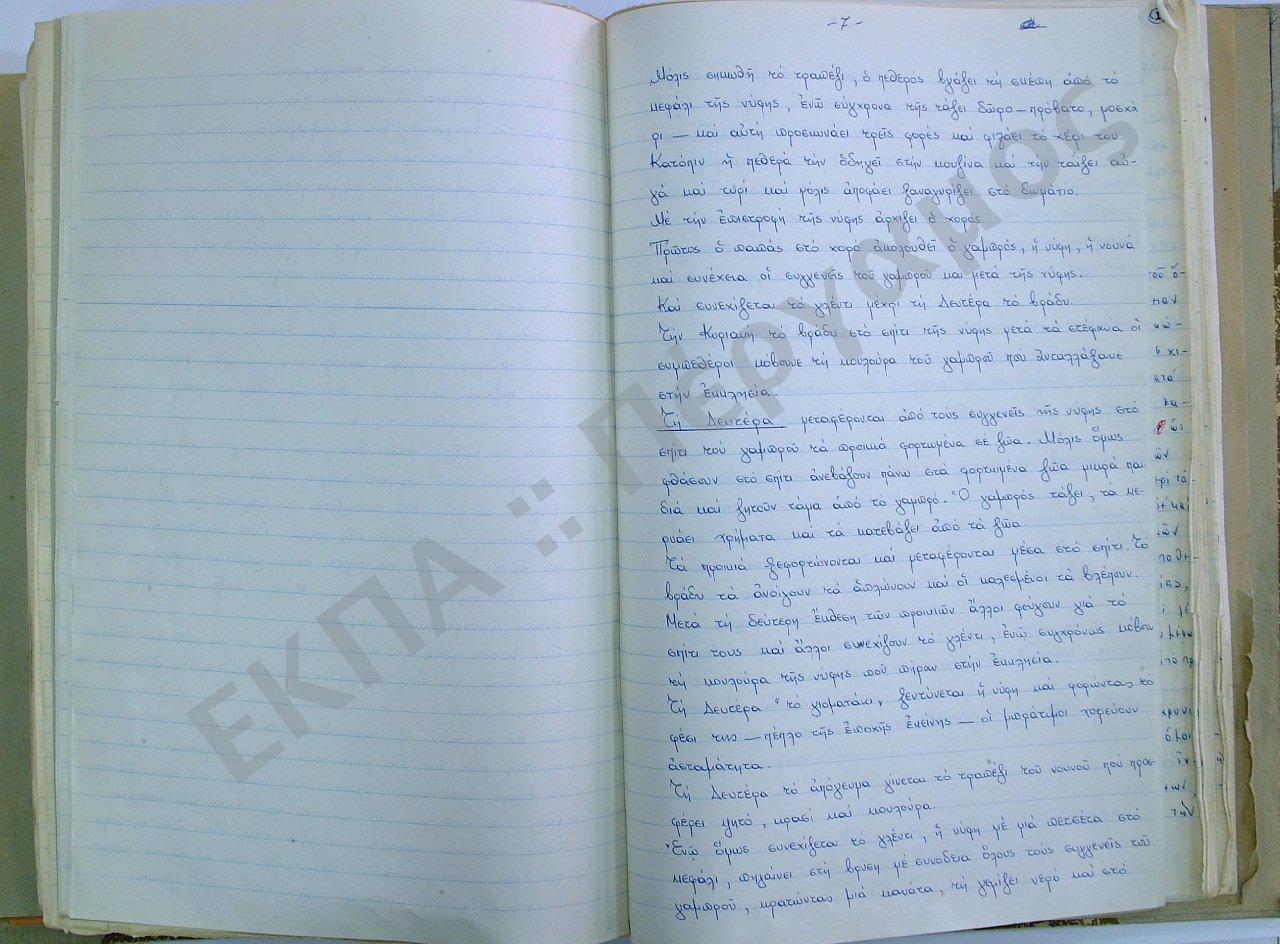 -7-
Μόλις σηκωθῆ τό τραπέζι, ὁ πεθερός βγάζει τή σκέπη ἀπό τό
κεφάλι τῆς νύφης, ἐνῶ σύγχρονα τῆς τάζει δῶρο – πρόβατο, μοσχά
ρι – καί αὐτή προσκυνάει τρεῖς φορές καί φιλάει τό χέρι του.
Κατόπιν ἡ πεθερά τήν ὁδηγεῖ στήν κουζίνα καί τήν ταΐζει αὐ-
γά καί τυρί καί μόλις ἀποφάει ξαναγυρίζει στό δωμάτιο.
Μέ τήν ἐπιστροφή τῆς νύφης ἀρχίζει ὁ χορός.
Πρῶτος ὁ παπάς στό χορό ἀκολουθεῖ ὁ γαμπρός, ἡ νύφη, ἡ νουνά
καί συνέχεια οἱ συγγενεῖς τοῦ γαμπροῦ καί μετά τῆς νύφης.
Καί συνεχίζεται τό γλέντι μέχρι τή Δευτέρα τό βράδυ.
Τήν Κυριακή τό βράδυ στό σπίτι τῆς νύφης μετά τά στέφανα οἱ
συμπεθέροι κόβουνε τή κουλούρα τοῦ γαμπροῦ πού ἀνταλλάξανε
στήν ἐκκλησία.
Τή Δευτέρα μεταφέρονται ἀπό τούς συγγενεῖς τῆς νύφης στό
σπίτι τοῦ γαμπροῦ τά προικιά φορτωμένα σέ ζῶα. Μόλις ὅμως
φθάσουν στό σπίτι ἀνεβάζουν πάνω στά φορτωμένα ζῶα μικρά παι-
διά καί ζητοῦν τάμα ἀπό τό γαμπρό. Ὁ γαμπρός τάζει, τά κε-
ρνάει χρήματα καί τά κατεβάζει ἀπό τά ζῶα.
Τά προικιά ξεφορτώνονται καί μεταφέρονται μέσα στό σπίτι. Τό
βράδυ τά ἀνοίγουν τά ἁπλώνουν καί οἱ καλεσμένοι τά βλέπουν.
Μετά τή δεύτερη ἔκθεση τῶν προικιῶν ἄλλοι φεύγουν γιά τό
σπίτι τους καί ἄλλοι συνεχίζουν τό γλέντι, ἐνῶ συγχρόνως κόβουν
τή κουλούρα τῆς νύφης πού πῆραν στήν ἐκκλησία.
Τή Δευτέρα "τό γιοματάκι" ξεντύνεται ἡ νύφη καί φορώντας τό
φέσι της – πέπλο τῆς ἐποχῆς ἐκείνης – οἱ μπράτιμοι χορεύουν
ἀσταμάτητα.
Τή Δευτέρα τό ἀπόγευμα γίνεται τό τραπέζι τοῦ νουνοῦ που προσ-
φέρει ψητό, κρασί καί κουλούρα.
Ἐνῶ ὅμως συνεχίζεται τό γλέντι, ἡ νύφη μέ μιά πετσέτα στό
κεφάλι, πηγαίνει στή βρύση μέ συνοδεία ὅλους τούς συγγενεῖς τοῦ
γαμπροῦ, κρατώντας μιά κανάτα, τή γεμίζει νερό καί στό
ΕΚΠΑ :: Πέργαμος